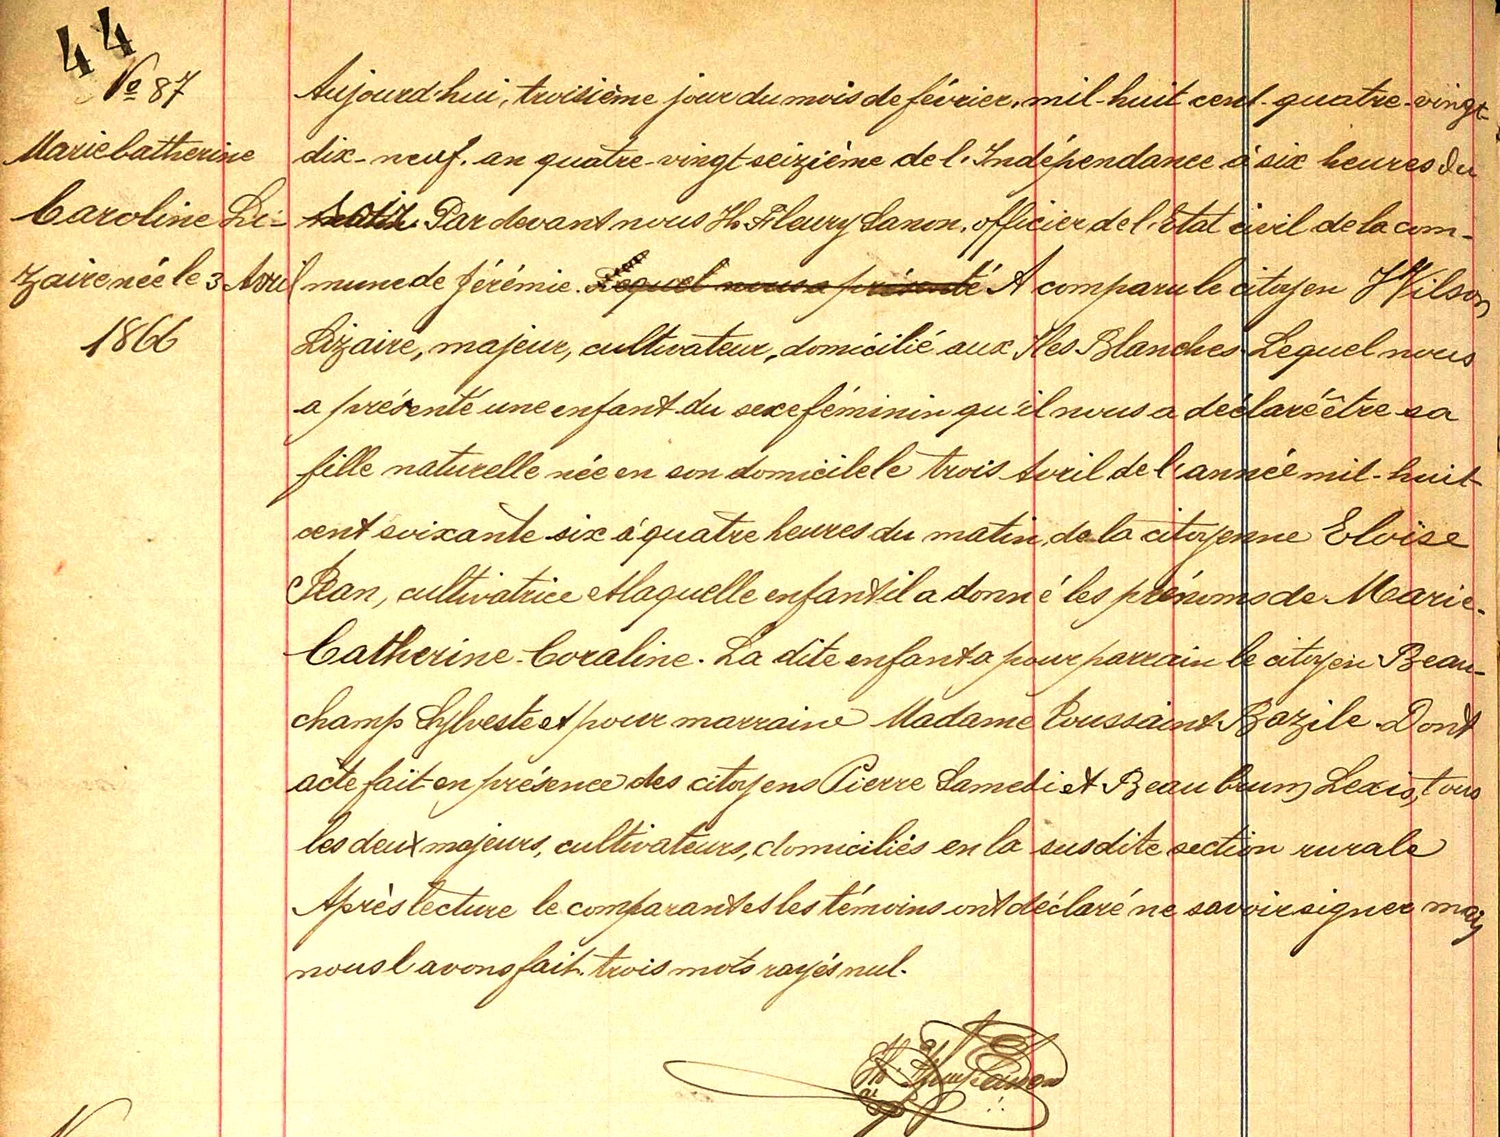 44
No 87
Marie Catherine
Caroline Li-
zaire née le 3 Avril
1866
Aujourd'hui, troisième jour du mois de février, mil-huit cent-quatre-vingt
dix-neuf. an quatre-vingt seizième de l'Indépendance à six heures du
soir. Par devant nous Th. Fleury Sanon, officier de l'Etat civil de la com-
mune de Jérémie. Lequel nous a présenté A comparu le citoyen Wilson
Lizaire, majeur, cultivateur, domicilié aux Iles Blanches Lequel nous
a présenté une enfant du sexe féminin qu'il nous a déclaré être sa
fille naturelle née en son domicile le trois Avril de l'année mil-huit
cent soixante six à quatre heures du matin, de la citoyenne Eloise
Jean, cultivatrice et laquelle enfant il a donné les prénoms de Marie-
Catherine-Coraline. La dite enfant a pour parrain le citoyen Beau-
champ Sylveste et pour marraine Madame Toussaint Bazile. Dont
acte fait en présence des citoyens Pierre Samedi et Beaubrun Lexis, tous
les deux majeurs, cultivateurs, domiciliés en la susdite section rurale
Après lecture le comparant et les témoins ont déclaré ne savoir signer mais
nous l'avons fait. trois mots rayés nul.
Th. Fleury Sanon